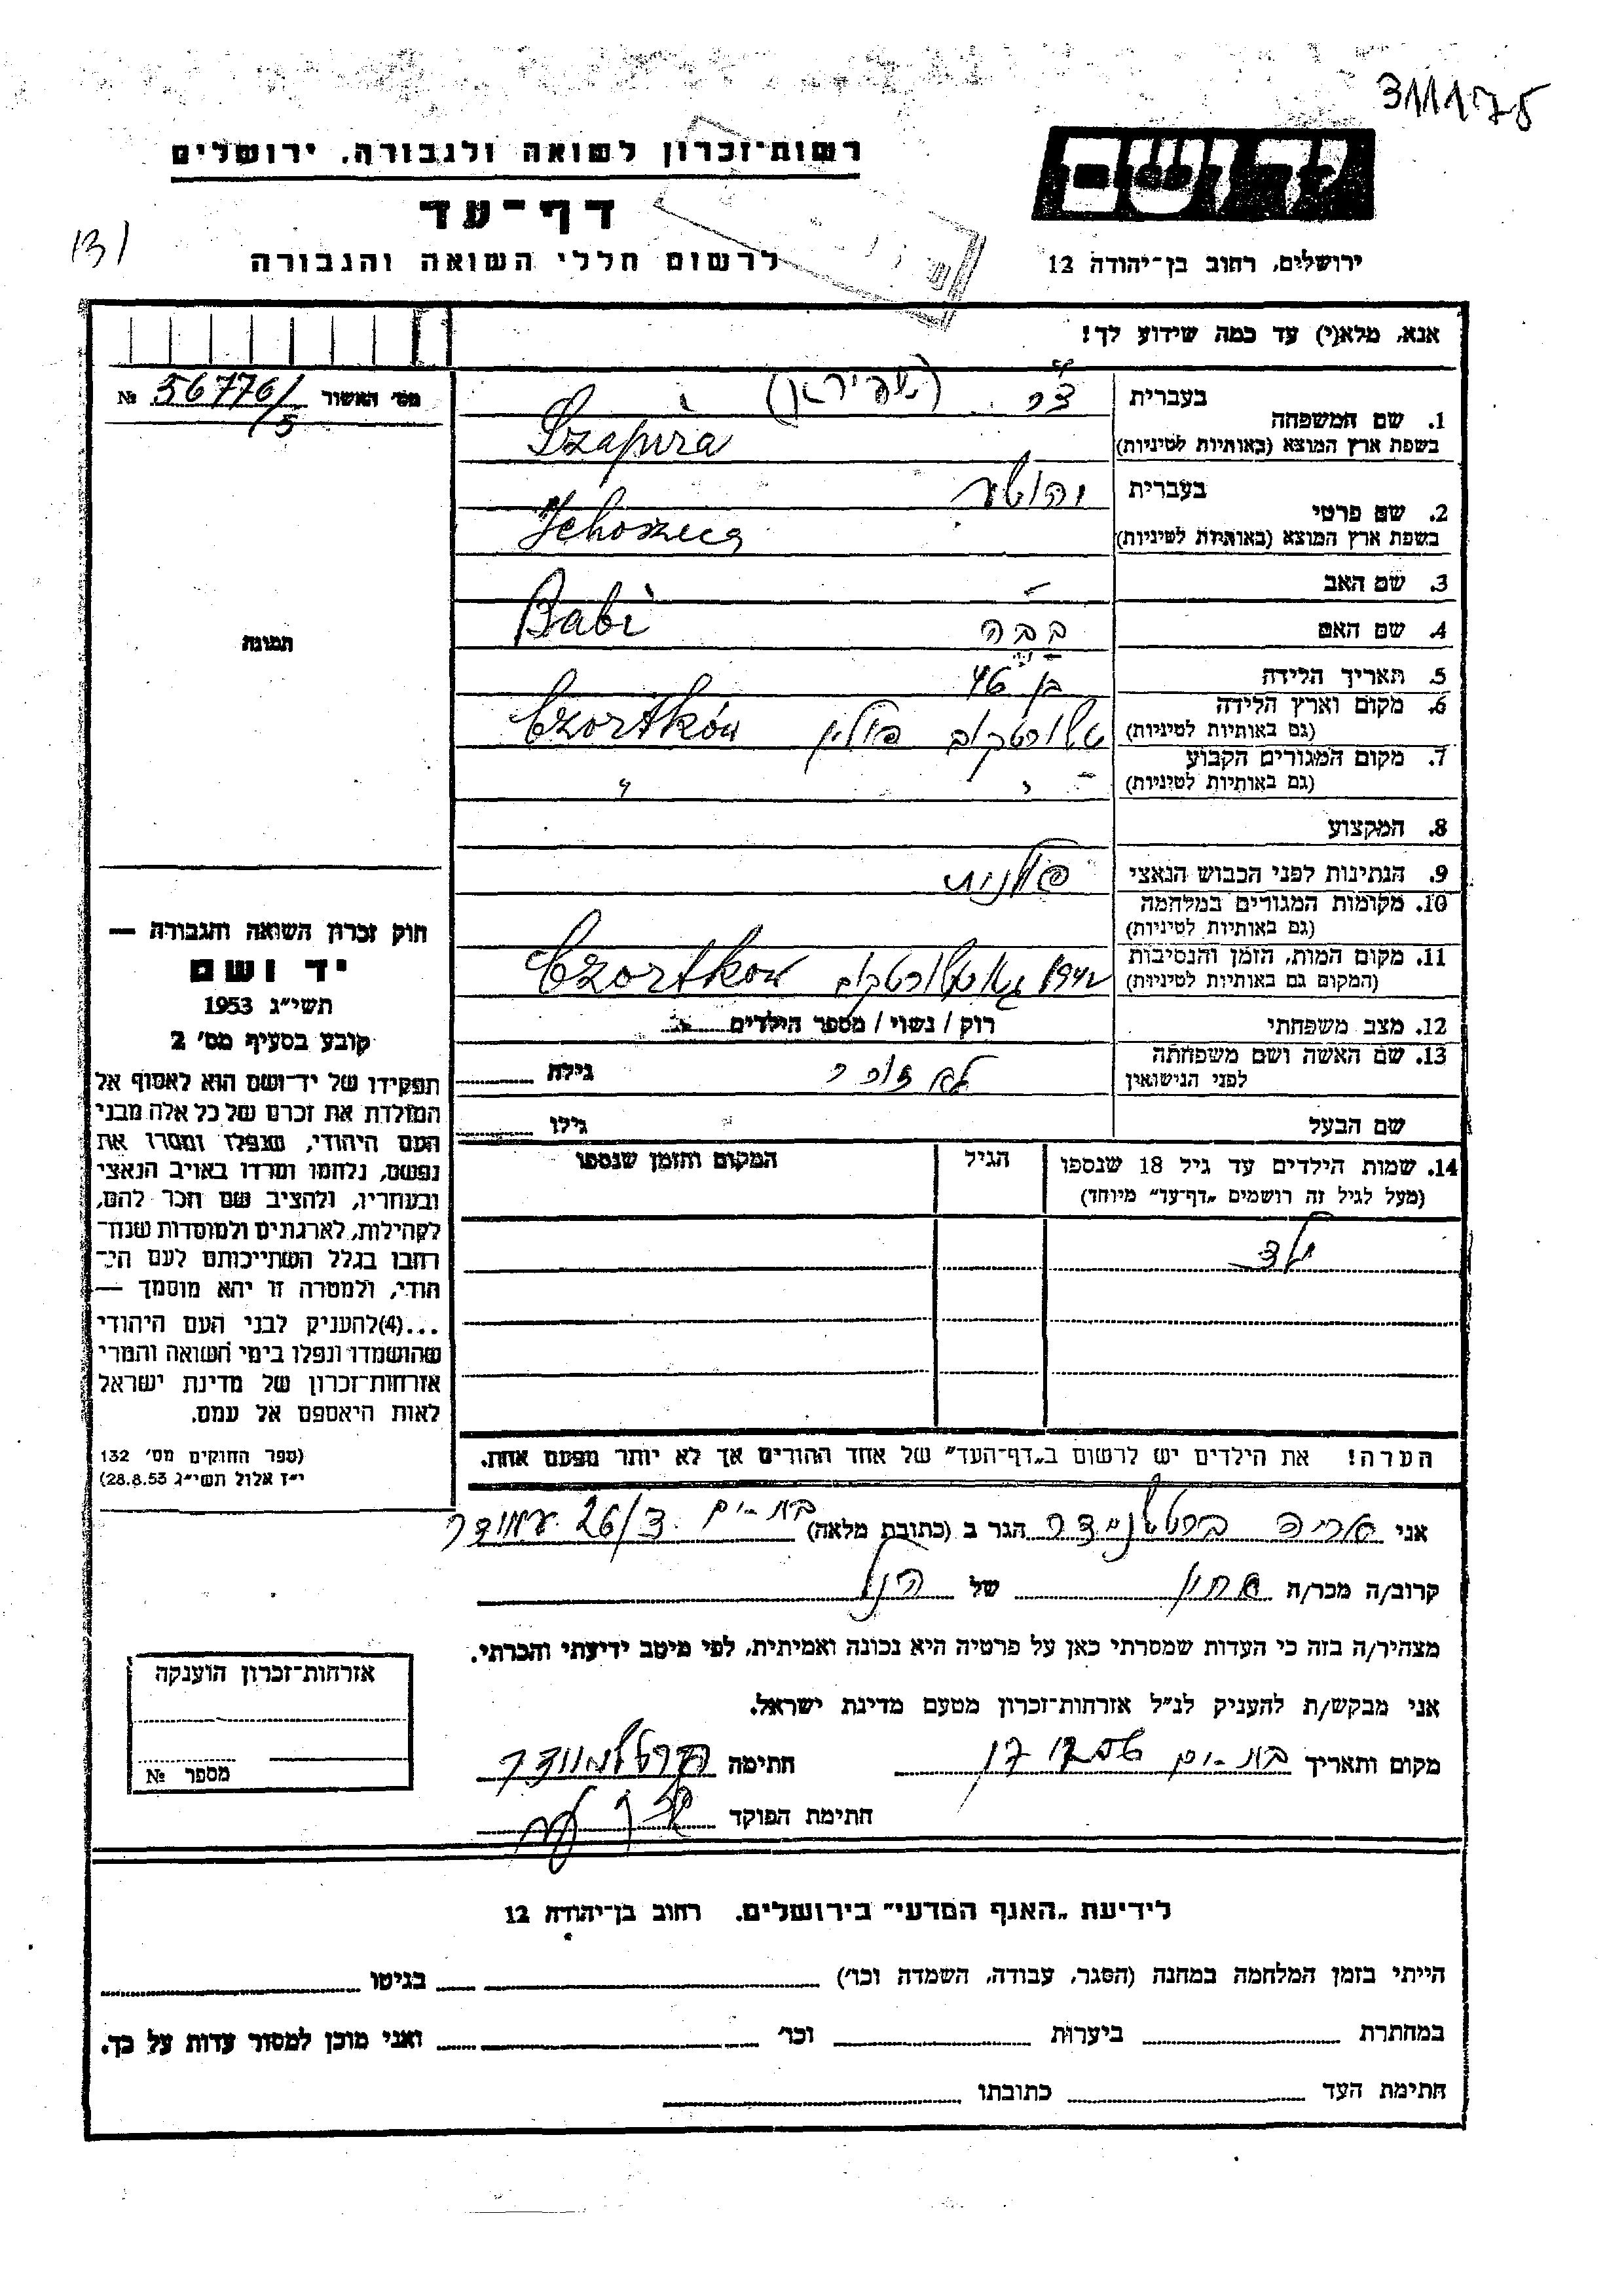 3111478
יד ושם
רשות-זכרון לשואה ולגבורה, ירושלים
דף-עד
131
לרשום חללי השואה והגבורה
ירושלים, רחוב בן-יהודה 12
אנא, מלא(י) עד כמה שידוע לך!
מס' האשור 56776/5 №
בעברית (שפירא)
1. שם המשפחה
בשפת ארץ המוצא (באותיות לטיניות) Szapira
בעברית יהושע
2. שם פרטי
בשפת ארץ המוצא (באותיות לטיניות) Jehoszua
3. שם האב -
4. שם האם בבה Babi
תמונה
5. תאריך הלידה בן 46
6. מקום וארץ הלידה
(גם באותיות לטיניות) טשורטקוב פולין Czortków
7. מקום המגורים הקבוע
(גם באותיות לטיניות) - " "
8. המקצוע
9. הנתינות לפני הכבוש הנאצי פולנית
10. מקומות המגורים במלחמה
(גם באותיות לטיניות)
11. מקום המות, הזמן והנסיבות
(המקום גם באותיות לטיניות) 1942 טשורטקוב Czortkow
12. מצב משפחתי רוק / נשוי / מספר הילדים
13. שם האשה ושם משפחתה
לפני הנישואין גילה
שם הבעל גילו
14. שמות הילדים עד גיל 18 שנספו הגיל המקום והזמן שנספו
(מעל לגיל זה רושמים „דף-עד" מיוחד)
ילד
הערה! את הילדים יש לרשום ב„דף-העד" של אחד ההורים אך לא יותר מפעם אחת.
חוק זכרון השואה והגבורה —
יד ושם
תשי"ג 1953
קובע בסעיף מס' 2
תפקידו של יד-ושם הוא לאסוף אל
המולדת את זכרם של כל אלה מבני
העם היהודי, שנפלו ומסרו את
נפשם, נלחמו ומרדו באויב הנאצי
ובעוזריו, ולהציב שם וזכר להם,
לקהילות, לארגונים ולמוסדות שנח-
רבו בגלל השתייכותם לעם הי-
הודי, ולמטרה זו יהא מוסמך —
...(4)להעניק לבני העם היהודי
שהושמדו ונפלו בימי השואה והמרי
אזרחות-זכרון של מדינת ישראל
לאות היאספם אל עמם.
(ספר החוקים מס' 132
י"ז אלול תשי"ג 28.8.53)
אני אריה הגר ב (כתובת מלאה) בת-ים 26/3
קרוב/ה מכר/ה של הנ"ל
מצהיר/ה בזה כי העדות שמסרתי כאן על פרטיה היא נכונה ואמיתית, לפי מיטב ידיעתי והכרתי.
אני מבקש/ת להעניק לנ"ל אזרחות-זכרון מטעם מדינת ישראל.
מקום ותאריך בת-ים חתימה
חתימת הפוקד
אזרחות-זכרון הוענקה
מספר №
לידיעת „האגף המדעי" בירושלים, רחוב בן-יהודה 12
הייתי בזמן המלחמה במחנה (הסגר, עבודה, השמדה וכו') בגיטו
במחתרת ביערות וכו' ואני מוכן למסור עדות על כך.
חתימת העד כתובתו